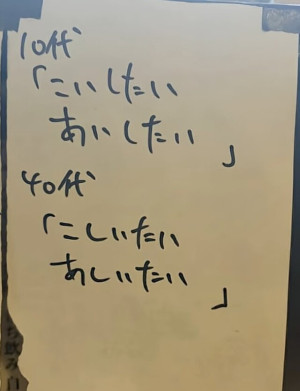 10代
「こいしたい
あいしたい
」
40代
「こしいたい
あしいたい
」